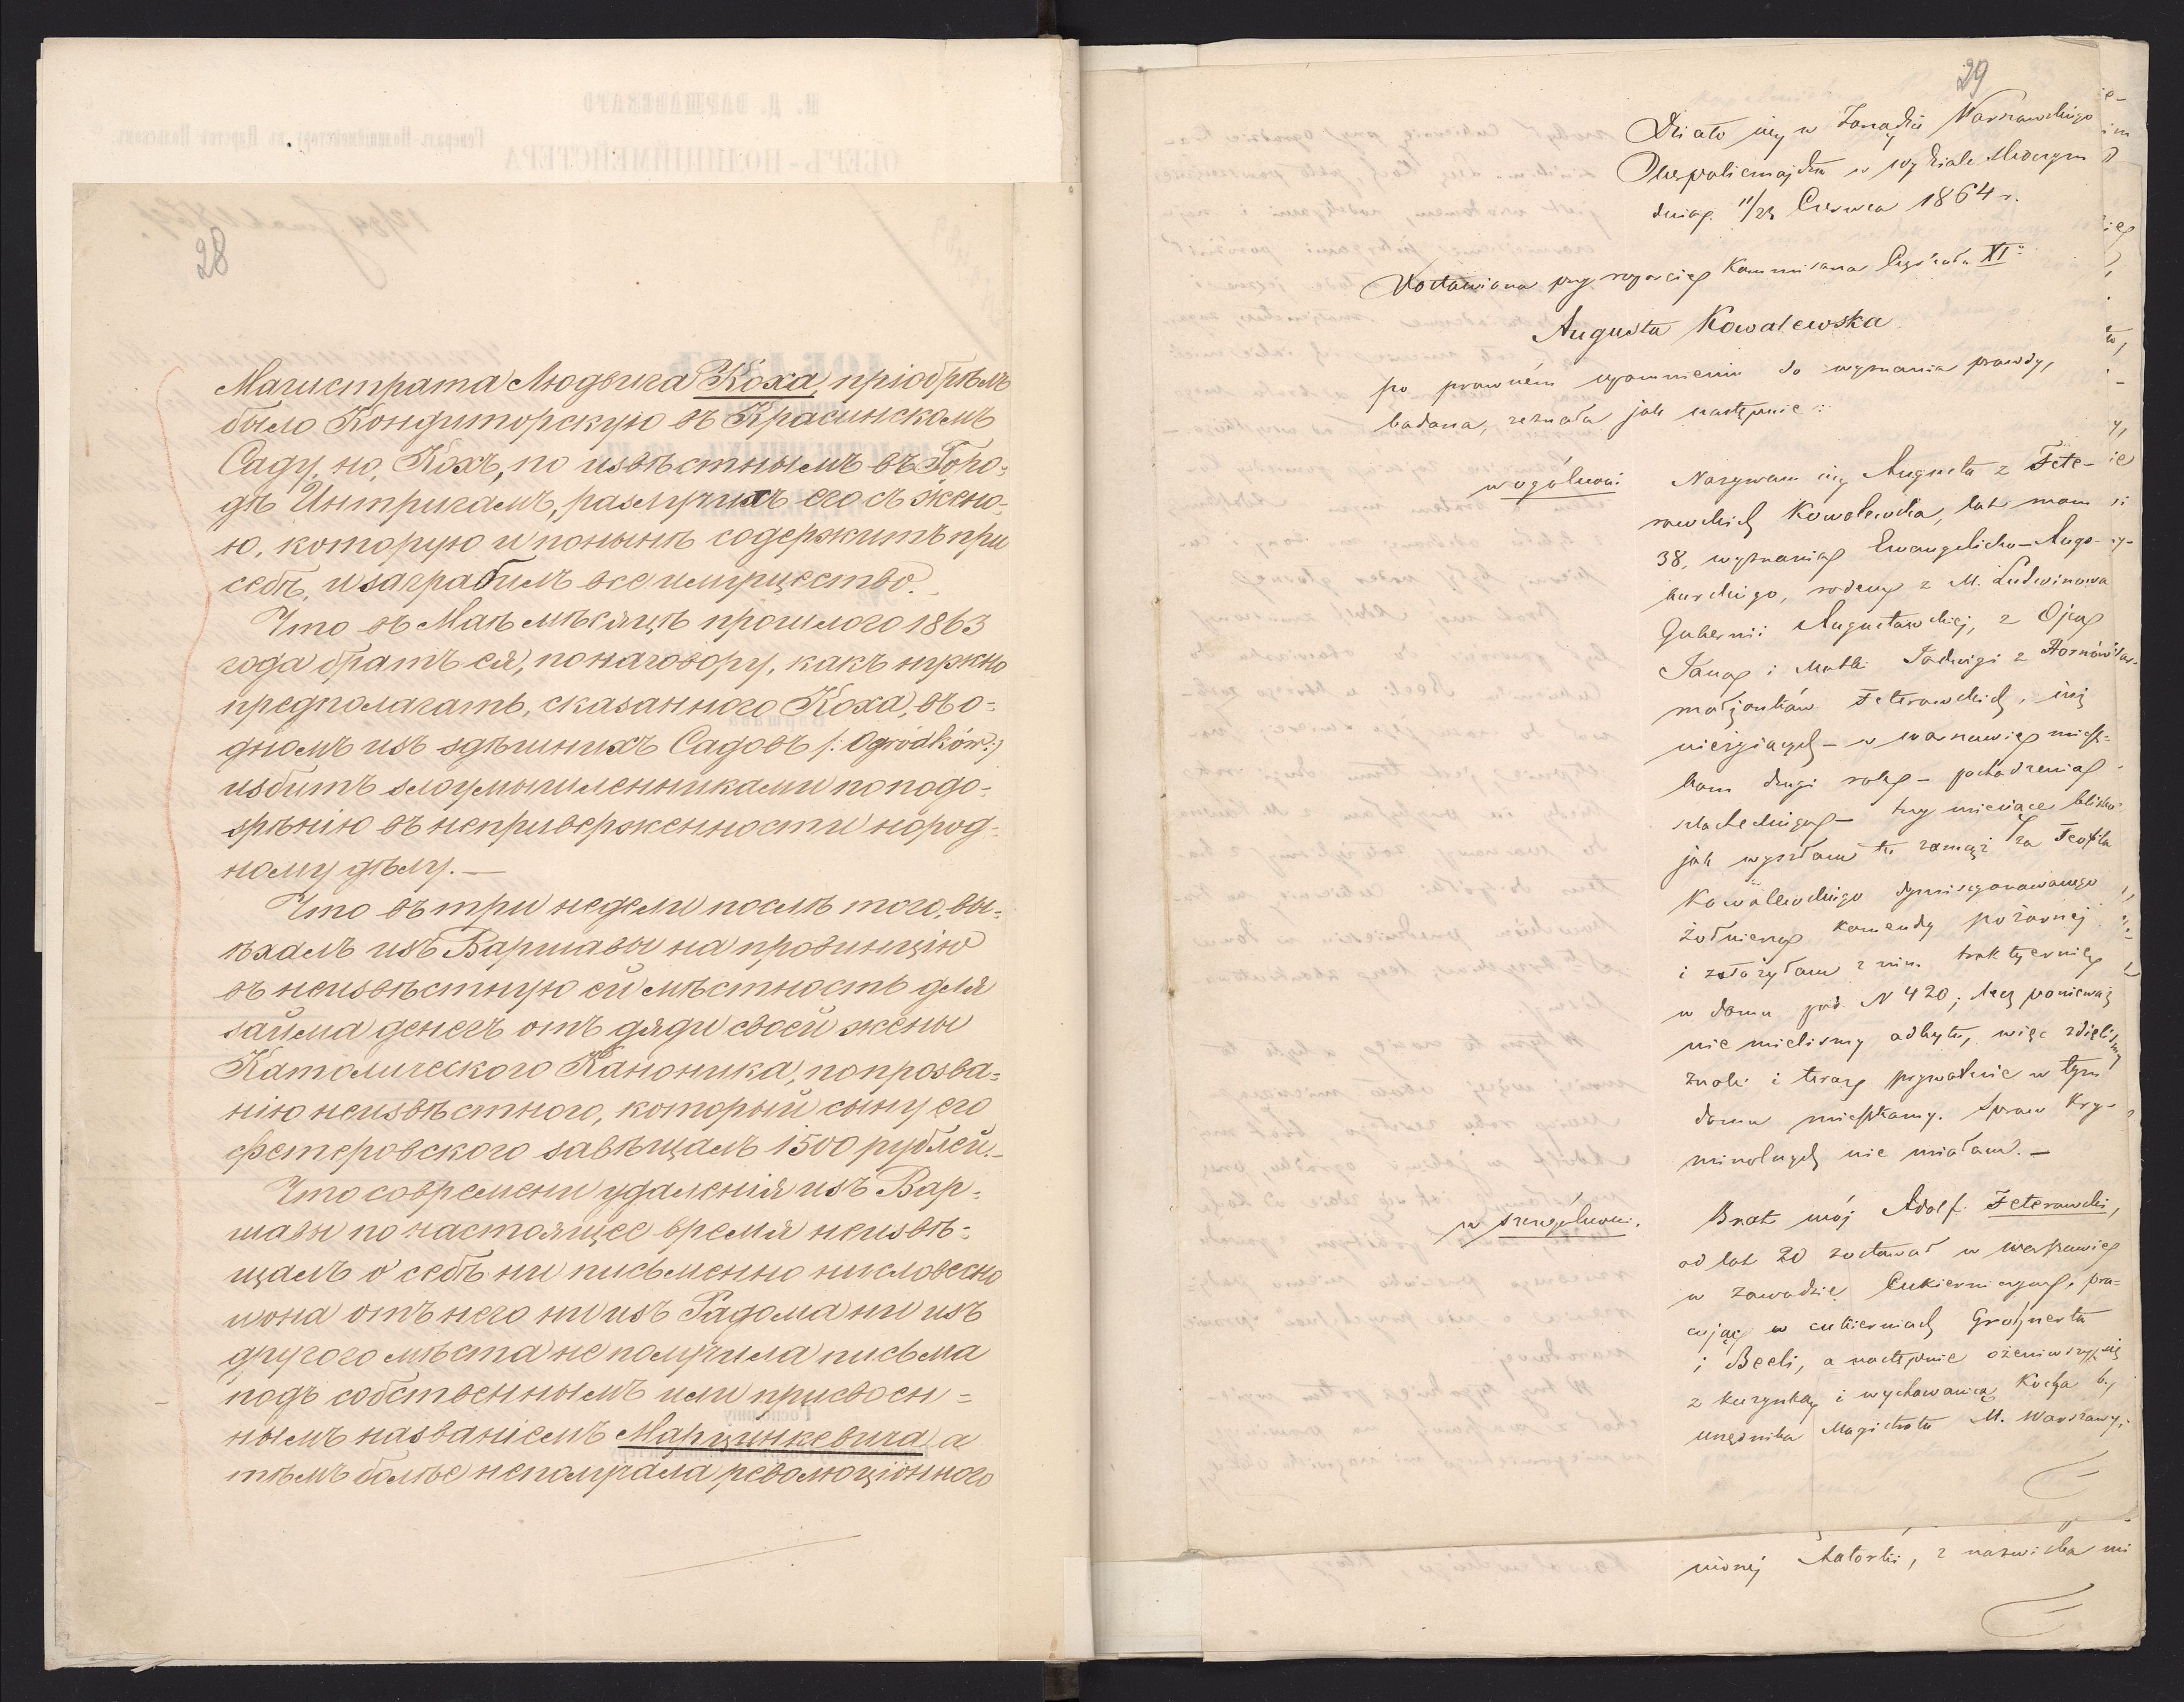 28
Магистрата Людвига Коха, пріобрѣлъ
было Кондиторскую въ Красинскомъ
Саду, но, Кохъ, по извѣстнымъ въ Горо-
дѣ Интригамъ, разлучилъ его съ жено-
ю, которую и понынѣ содержитъ при
себѣ, и заграбилъ все имущество.
Что въ Маѣ мѣсяцѣ прошлого 1863
года братъ ея, по наговору, какъ нужно
предполагать, сказанного Коха, въ о-
дномъ изъ здѣшнихъ Садовъ /: Ogródków :/
избитъ злоумышленниками по подо-
зрѣнію въ неприверженности народ-
ному дѣлу. —
Что въ три недели послѣ того, вы-
ѣхалъ изъ Варшавы на провинцію
въ неизвѣстную ей мѣстность для
займа денегъ отъ дяди своей жены
Католического Каноника, по прозва-
нію неизвѣстного, который сыну его
Фетеровского завѣщалъ 1500 рублей. –
Что со времени удаленія изъ Вар-
шавы по настоящее время не извѣ-
щалъ о себѣ ни письменно ни словесно
и она отъ него ни изъ Радома ни изъ
другого мѣста не получила письма
подъ собственнымъ или присвоен-
нымъ названіемъ Марцинкевича, а
тѣмъ болѣе не получала революціонного
29
Działo się w Zarządzie Warszawskiego
Oberpolicmajstra w wydziale śledczym
dnia 11/23 Czerwca 1864 r.
Dostawiona przy raporcie Kommisarza Cyrkułu XI:
Augusta Kowalewska
po prawném upomnieniu do wyznania prawdy,
badana, zeznała jak następnie:
w ogólności
Nazywam się Augusta z Fete-
rowskich Kowalewska, lat mam
38, wyznania Ewangelicko-Augs-
burskiego, rodem z M. Ludwinowa
Gubernii Augustowskiej, z Ojca
Jana i Matki Jadwigi z
małżonków Feterowskich, już
nieżyjących – w warszawie miesz-
kam drugi rok – pochodzenia
szlacheckiego – trzy miesiące blisko
jak wyszłam tu zamąż za Teofila
Kowalewskiego dymisyonowanego
żołnierza komendy pożarnej
i założyłam z nim traktyernię
w domu pod N 420; lecz ponieważ
nie mieliśmy odbytu, więc zdjęliśmy
znaki i teraz prywatnie w tym
domu mieszkamy. Spraw kry-
minalnych nie miałam. –
w szczególności.
Brat mój Adolf Feterowski,
od lat 20 zostawał w warszawie
w zawodzie Cukierniczym, pra-
cując w cukierniach Grohnerta
i Beeli, a następnie ożeniwszy się
z kuzynką i wychowanicą Kocha b.
urzędnika Magistratu M. Warszawy,
mionej Katorki, z nazwiska mi